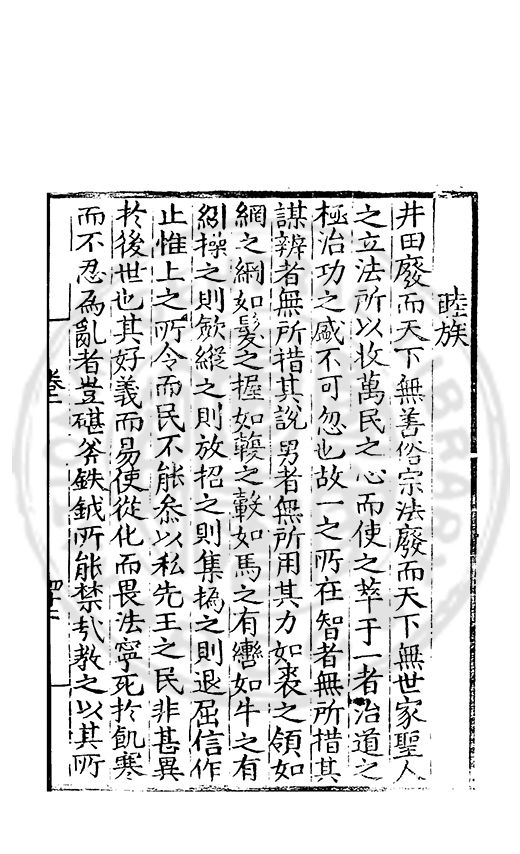 睦族
井田廢而天下無善俗宗法廢而天下無世家聖人
之立法所以收萬民之心而使之萃于一者治道之
極治功之盛不可忽也故一之所在智者無所措其
謀辨者無所措其說勇者無所用其力如裘之領如
網之綱如髮之握如輻之轂如馬之有轡如牛之有
紖操之則歛縱之則放招之則集撝之則退屈信作
止惟上之所令而民不能叅以私先王之民非甚異
扵後世也其好義而易使從化而畏法寧死扵飢寒
而不忍為亂者豈碪斧鈇鉞所能禁㢤教之以其所